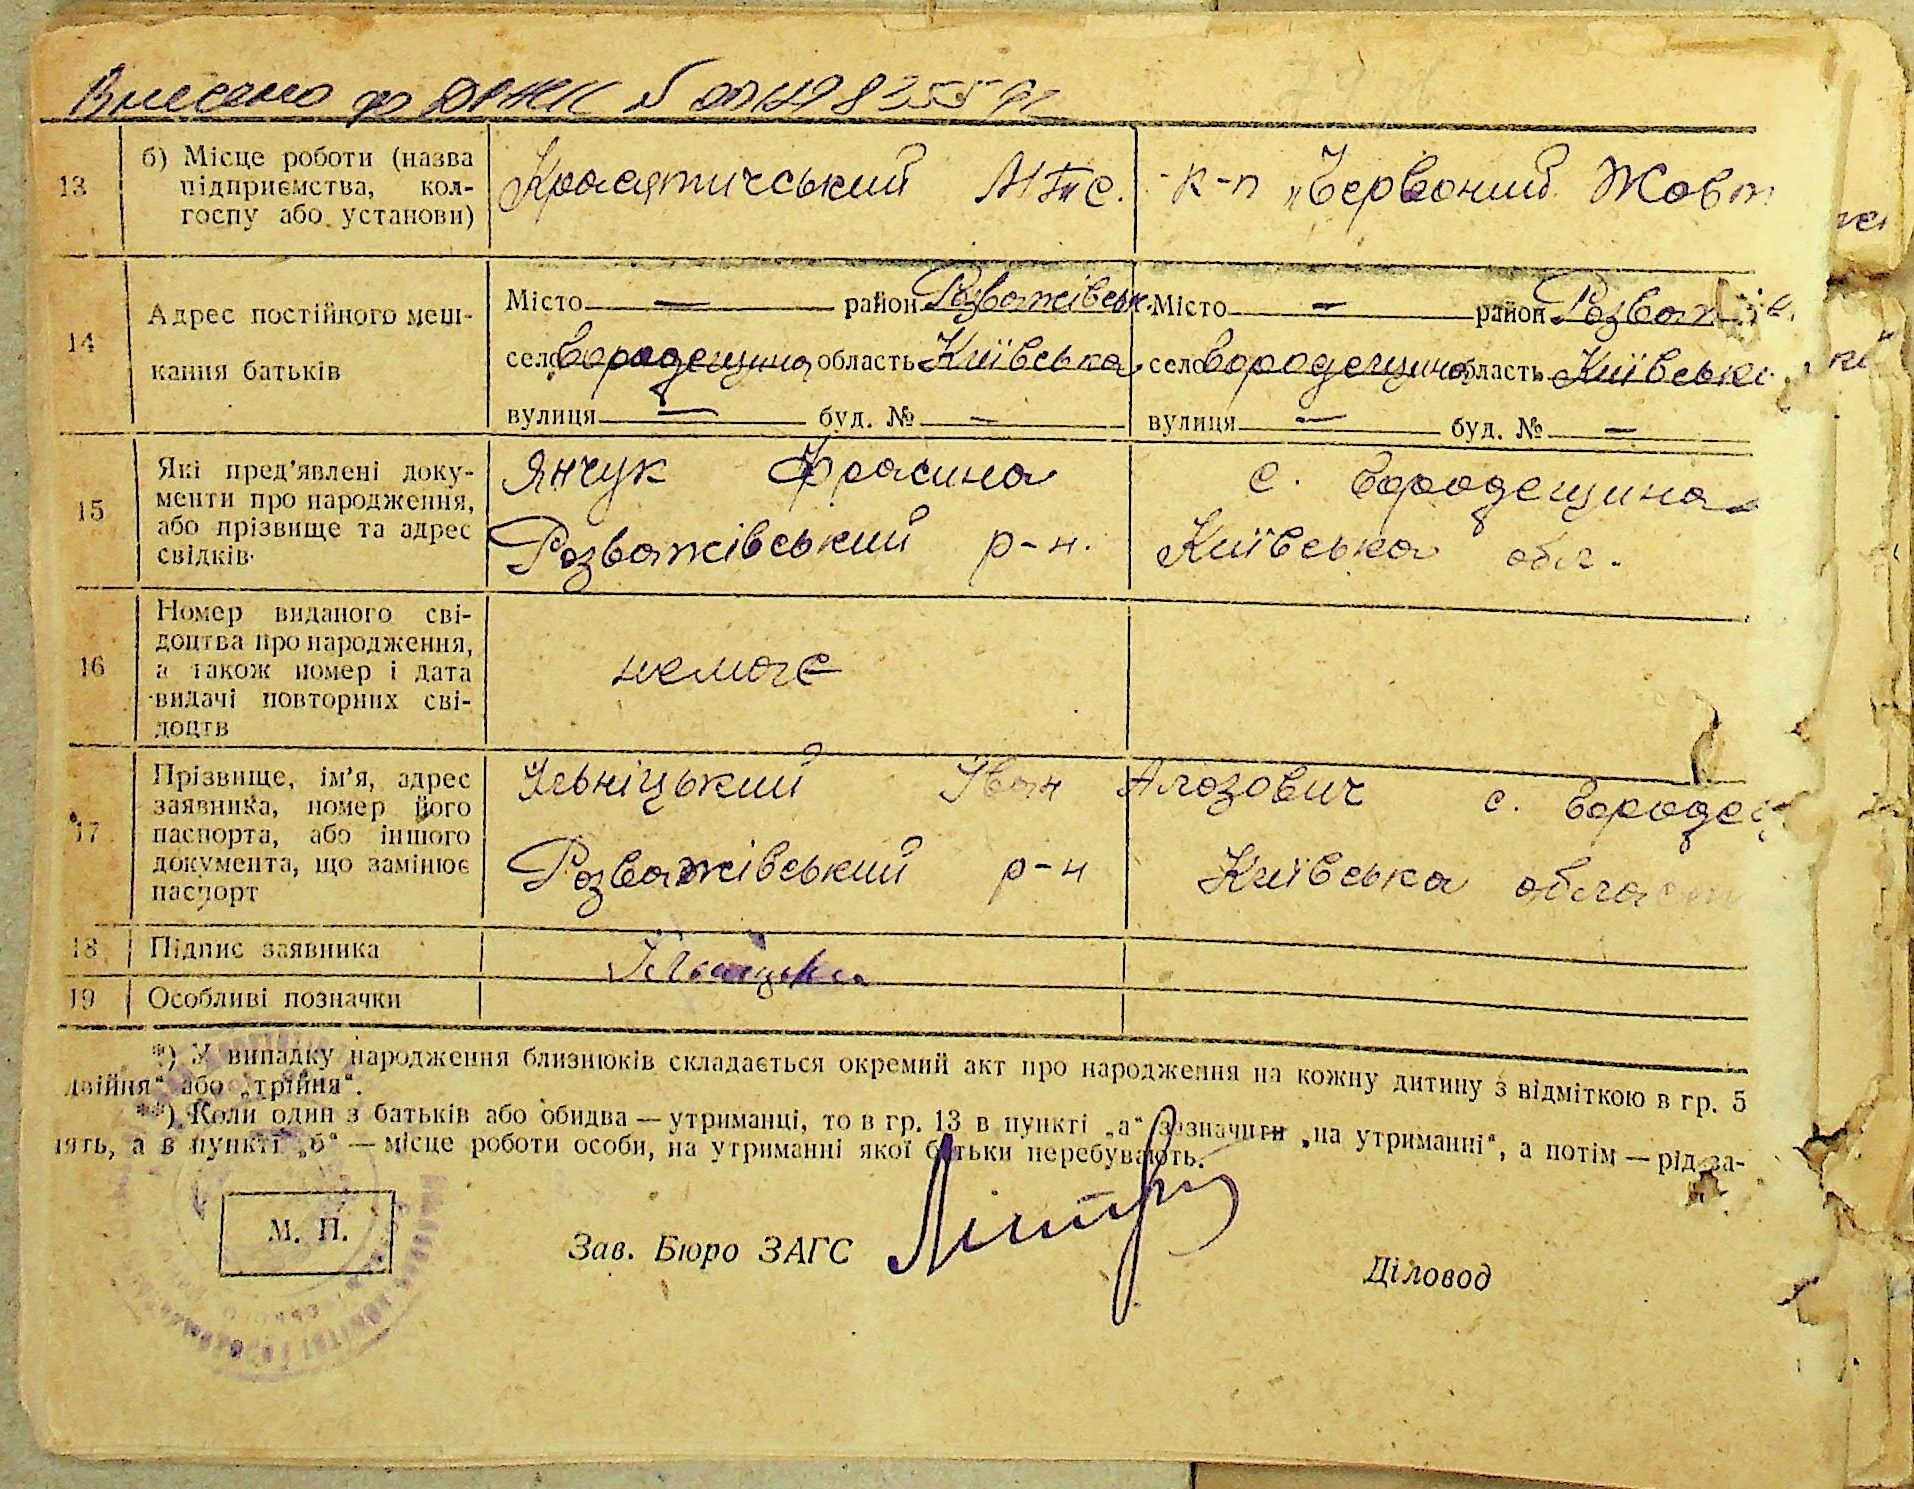 Внесено до ДРАЦС №
13 б) Місце роботи (назва підприємства, кол-госпу або установи) Красятичський МТС. к-п „Червоний Жовт
14 Адрес постійного меш-кання батьків
Місто — район Розважівськ. Місто — район Розваж
село Бородещина область Київська село Бородещина область Київськ
вулиця — буд. № — вулиця — буд. № —
15 Які пред'явлені доку-менти про народження, або прізвище та адрес свідків
Янчук Фрасина с. Бородещина
Розважівський р-н. Київська обл.
16 Номер виданого сві-доцтва про народження, а також номер і дата видачі повторних сві-доцтв
немає
17 Прізвище, ім'я, адрес заявника, номер його паспорта, або іншого документа, що замінює паспорт
Ільніцький Іван с. Бородещ
Розважівський р-н Київська област
18 Підпис заявника
19 Особливі позначки
*) У випадку народження близнюків складається окремий акт про народження на кожну дитину з відміткою в гр. 5
двійня" або „трійня".
**) Коли один з батьків або обидва — утриманці, то в гр. 13 в пункті „а" зазначити „на утриманні", а потім — рід за-
нять, а в пункті „б" — місце роботи особи, на утриманні якої батьки перебувають.
М. П.
Зав. Бюро ЗАГС
Діловод